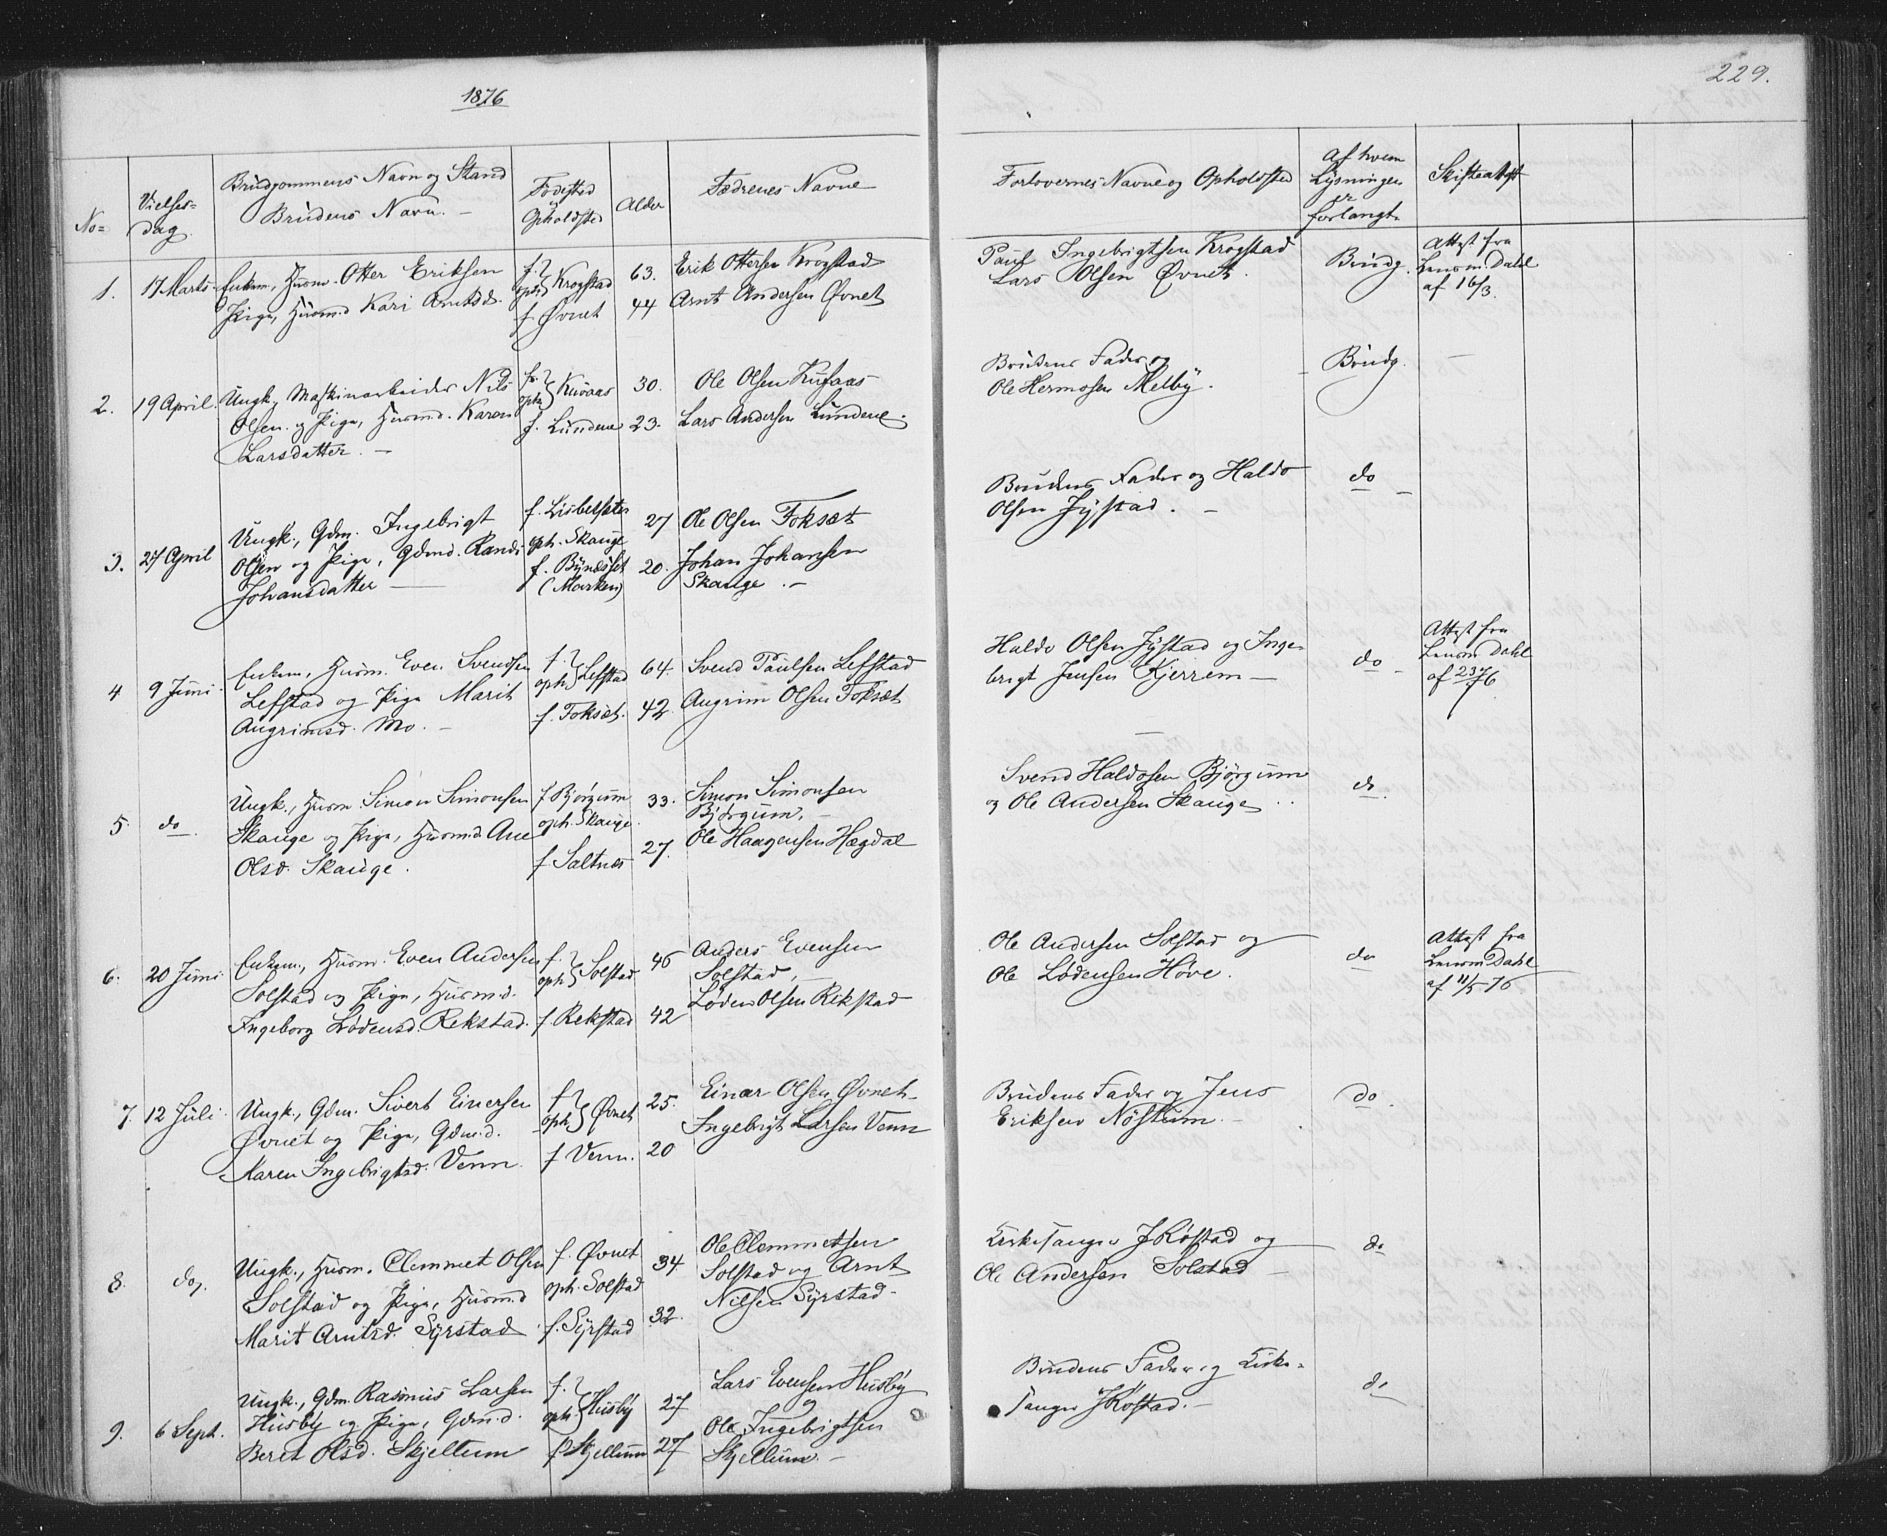 1876
229.
No=
Vielses=
dag.
Brudgommens Navn og Stand
Brudens Navn. —
Fødested
og
Opholdsted
Alder
Fædrenes Navne
Forlovernes Navne og Opholdsted
Af hvem
Lysningen
er
forlangt
Skifteattest
1.
17 Marts
Enkem, Husm. Otter Eriksen
Pige, Husmd Kari Arntsd.
f.
oph
Krogstad
f. Øvnet
63.
44
Erik Ottersen Krogstad
Arnt Andersen Øvnet
Paul Ingebrigtsen Krogstad
Lars Olsen Øvnet.
Brudg.
Attest fra
Lensm. Dahl
af 16/3.
2.
19 April.
Ungk, Maskinarbeider Nils
Olsen og Pige, Husmd. Karen
Larsdatter. —
f.
oph
Kuvaas
f. Lundene
30.
23.
Ole Olsen Kufaas
Lars Andersen Lundene.
Brudens Fader og
Ole Hermosen Melby.
Brudg.
3.
27 April
Ungk., Gdm. Ingebrigt
Olsen og Pige, Gdmd. Randi
Johansdatter —
f. Lisbetsæter
oph. Skauge
f. Bynæsset
(Marken)
27
20.
Ole Olsen Foksæt
Johan Johansen
Skauge. —
Brudens Fader og Haldo
Olsen Jystad. —
do
4
9 Juni
Enkem, Husm. Even Svendsen
Lefstad og Pige Marit
Angrimsd. Mo. —
f.
oph.
Lefstad
f. Foksæt.
64.
42.
Svend Paulsen Lefstad
Angrim Olsen Foksæt
Haldo Olsen Jystad og Inge-
brigt Jensen Kjerrem —
do
Attest fra
Lensm Dahl
af
5.
do
Ungk., Husm. Simon Simonsen
Skauge og Pige, Husmd. Ane
Olsd. Skauge.
f Bjørgum
oph. Skauge.
f. Saltnes
33.
27.
Simon Simonsen
Bjørgum,
Ole Haagensen Hægdal
Svend Haldosen Bjørgum
og Ole Andersen Skauge.
do.
6.
20 Juni.
Enkem., Husm. Even Andersen
Solstad og Pige, Husmd.
Ingeborg Lødensd. Rekstad.
f.
oph
Solstad
f. Rekstad
46
42
Anders Evensen
Solstad,
Løden Olsen Rekstad
Ole Andersen Solstad og
Ole Lødensen Hove.
do
Attest fra
Lensm Dahl
af 11/5 76
7.
12 Juli
Ungk., Gdm. Sivert Einersen
Øvnet og Pige, Gdmd.
Maren Ingebrigtsd. Venn.
f.
oph
Øvnet
f Venn.
25.
20
Einar Olsen Øvnet
Ingebrigt Larsen Venn
Brudens Fader og Jens
Eriksen Nøstum. —
do.
8.
do,
Ungk., Husm. Clemmet Olsen
Solstad og Pige, Husmd
Marit Arntsd. Syrstad
f. Øvnet
oph. Solstad
f. Syrstad
34
32.
Ole Clemmetsen
Solstad og Arnt
Nilsen Syrstad.
Kirkesanger J Røstad og
Ole Andersen Solstad —
do
9.
6 Sept.
Ungk., Gdm. Rasmus Larsen
Husby og Pige, Gdmd.
Beret Olsd. Skjellum
f.
oph.
Husby
f Skjellum
27
27
Lars Evensen Husby
og
Ole Ingebrigtsen
Skjellum. —
Brudens Fader og Kirke-
sanger J Røstad. —
do